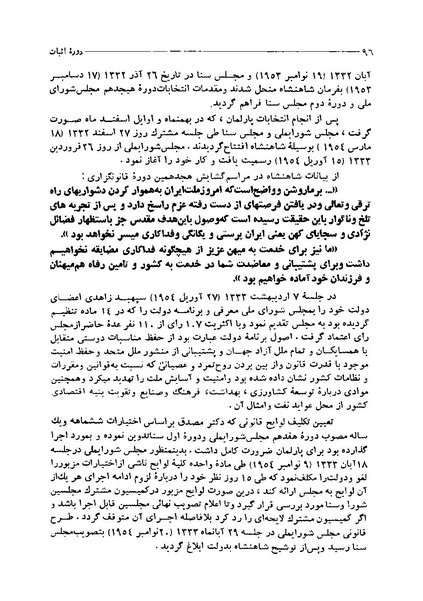 ۹۶ دورهٔ اثبات
آبان ۱۳۳۲ (۱۹ نوامبر ۱۹۵۳) و مجلس سنا در تاریخ ۲۶ آذر ۱۳۳۲ (۱۷ دسامبر
۱۹۵۳) بفرمان شاهنشاه منحل شدند ومقدمات انتخابات‌دورهٔ هیجدهم مجلس‌شورای
ملی و دورهٔ دوم مجلس سنا فراهم گردید.
پس از انجام انتخابات پارلمان ، که در بهمنماه و اوایل اسفند ماه صورت
گرفت ، مجلس شورایملی و مجلس سنا طی جلسه مشترک روز ۲۷ اسفند ۱۳۳۲ (۱۸
مارس ۱۹۵۴ ) بوسیلهٔ شاهنشاه افتتاح‌گردیدند. مجلس شورایملی از روز ۲۶ فروردین
۱۳۳۳ (۱۵ آوریل ۱۹۵۴) رسمیت یافت و کار خود را آغاز نمود .
از بیانات شاهنشاه در مراسم‌گشایش هجدهمین دورهٔ قانونگزاری :
«... برماروشن وواضح‌است‌که امروزملت‌ایران به‌هموار کردن دشواریهای راه
ترقی‌وتعالی ودر یافتن فرصتهای از دست رفته عزم راسخ دارد و پس از تجربه های
تلخ وناگوار باین حقیقت رسیده است که‌وصول باین‌هدف مقدس جز باستظهار فضائل
نژادی و سجایای کهن یعنی ایران پرستی و یگانگی وفداکاری میسر نخواهد بود ».
«ما نیز برای خدمت به میهن عزیز از هیچگونه فداکاری مضایقه نخواهیم
داشت وبرای پشتیبانی و معاضدت شما در خدمت به کشور و تامین رفاه هم‌میهنان
و فرزندان خودآماده خواهیم بود ».
در جلسهٔ ۷ اردیبهشت ۱۳۳۳ (۲۷ آوریل ۱۹۵۴) سپهبد زاهدی اعضای
دولت خود را بمجلس شورای ملی معرفی و برنامه دولت را که در ۱۴ ماده تنظیم
گردیده بود به مجلس تقدیم نمود وبا اکثریت ۱۰۷ رای از ۱۱۰ نفر عدهٔ حاضرازمجلس
رای اعتماد گرفت . اصول برنامهٔ دولت عبارت بود از حفظ مناسبات دوستی متقابل
با همسایگان و تمام ملل آزاد جهان و پشتیبانی از منشور ملل متحد و حفظ امنیت
موجود با قدرت قانون واز بین بردن روح‌تمرد و عصیانی که نسبت به‌قوانین ومقررات
و نظامات کشور نشان داده شده بود وامنیت و آسایش ملت را تهدید میکرد وهمچنین
موادی دربارهٔ توسعهٔ کشاورزی ، بهداشت، فرهنگ وصنایع وتقویت بنیه اقتصادی
کشور از محل عواید نفت وامثال آن .
تعیین تکلیف لوایح قانونی که دکتر مصدق براساس اختیارات ششماهه ویک
ساله مصوب دورهٔ هفدهم مجلس‌شورایملی ودورهٔ اول سناتدوین نموده و بمورد اجرا
گذارده بود برای پارلمان ضرورت کامل داشت. بدینمنظور مجلس شورایملی درجلسه
۱۸آبان ۱۳۳۳ (۹ نوامبر ۱۹۵۴) طی مادهٔ واحده کلیهٔ لوایح ناشی ازاختیارات مزبوررا
لغو ودولت‌را مکلف‌نمود که طی ۱۵ روز نظر خود را دربارهٔ لزوم ادامه اجرای هر یك‌از
آن لوایح به مجلس ارائه کند ، دراین صورت لوایح مزبور درکمیسیون مشترک مجلسین
شورا وسنا مورد بررسی قرار گیرد وتا اعلام تصویب نهائی مجلسین قابل اجرا باشد و
اگر کمیسیون مشترک لایحه‌ای را رد کرد بلافاصله اجرای آن متوقف گردد . طرح
قانونی مجلس شورایملی در جلسه ۲۹ آبانماه ۱۳۳۳ (۲۰نوامبر ۱۹۵۴) بتصویب‌مجلس
سنا رسید وپس‌از توشیح شاهنشاه بدولت ابلاغ گردید .